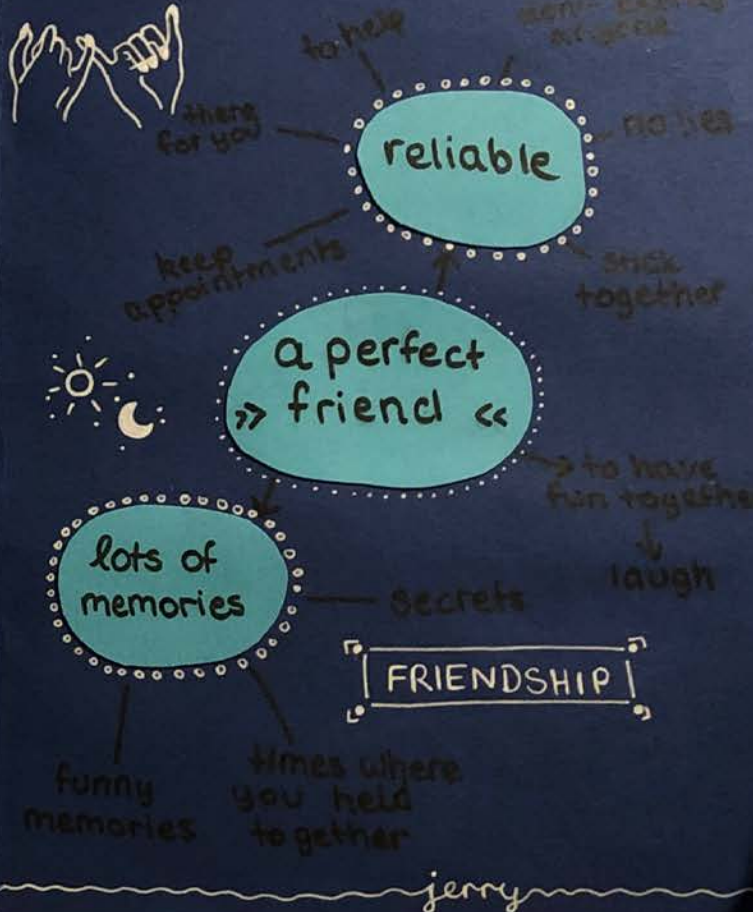 to help
there
for you
reliable
no lies
keep
appointments
stick
together
a perfect
>> friend <<
to have
fun together
laugh
lots of
memories
secrets
FRIENDSHIP
funny
memories
times where
you held
together
jerry